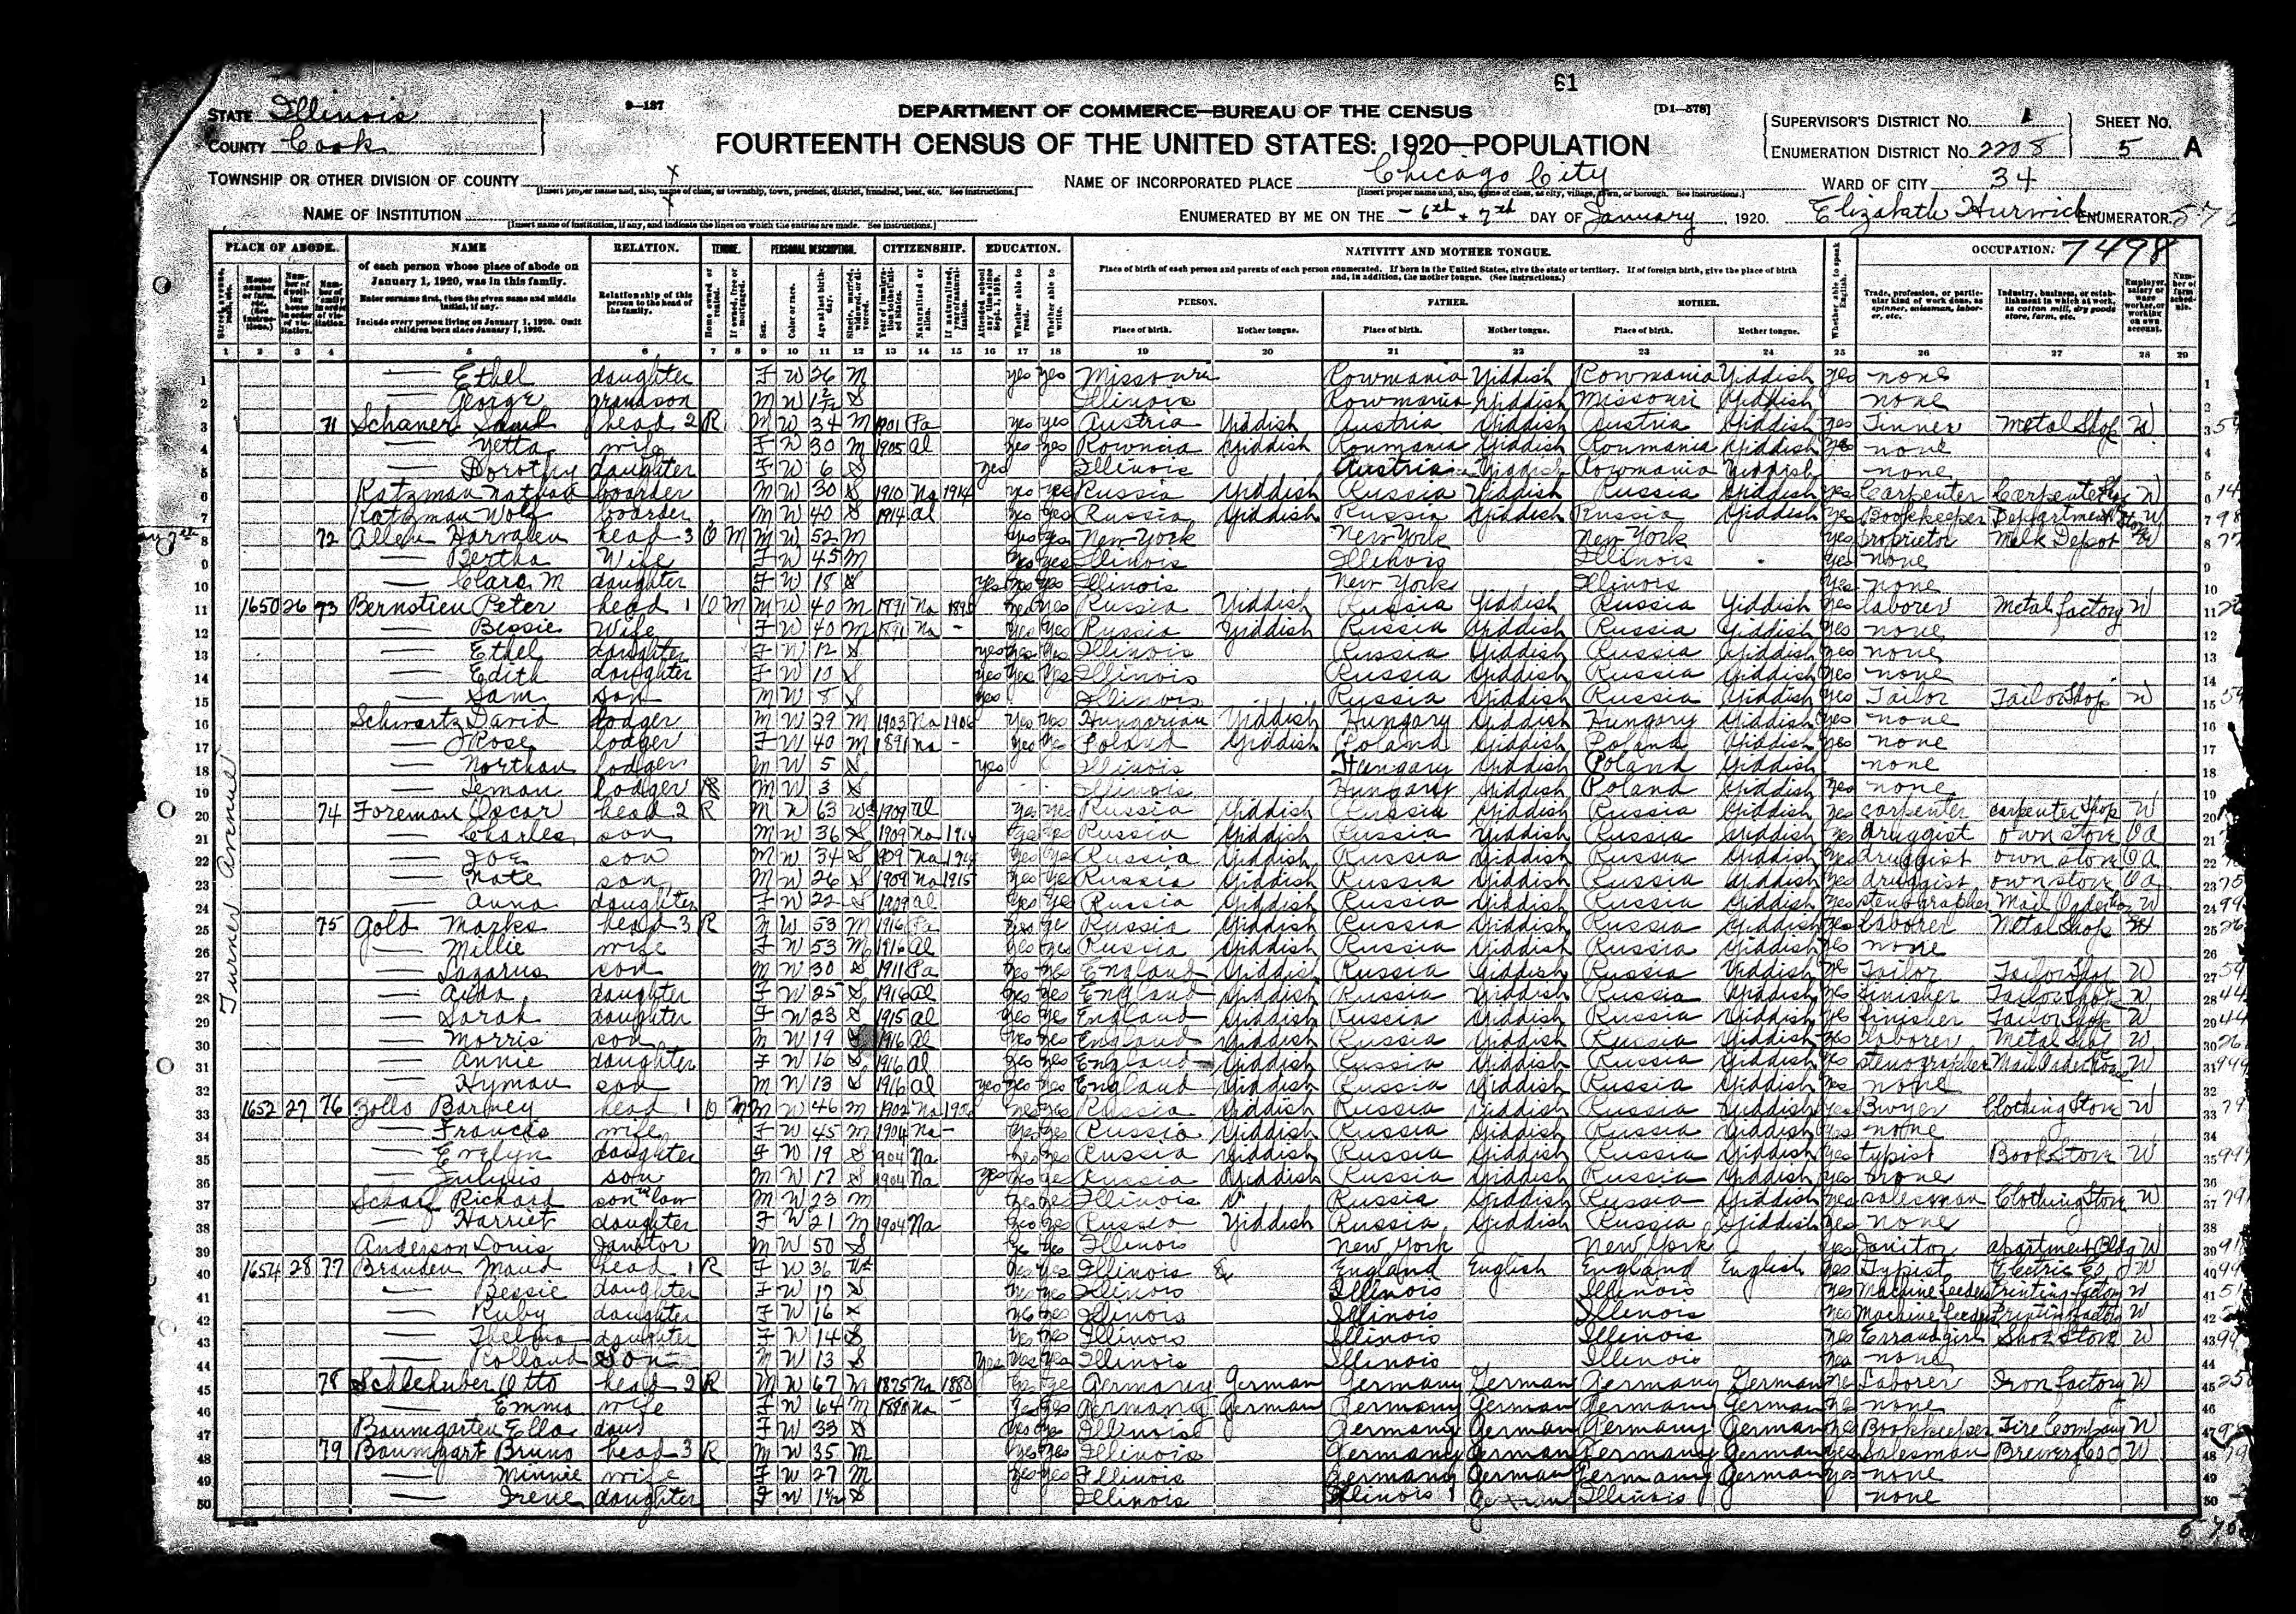 61
STATE Illinois 9-137 DEPARTMENT OF COMMERCE—BUREAU OF THE CENSUS [D1-578]
COUNTY Cook FOURTEENTH CENSUS OF THE UNITED STATES: 1920—POPULATION
SUPERVISOR'S DISTRICT No. 1 SHEET No.
ENUMERATION DISTRICT No. 2208 5 A
TOWNSHIP OR OTHER DIVISION OF COUNTY X NAME OF INCORPORATED PLACE Chicago City WARD OF CITY 34
[Insert proper name and, also, name of class, as township, town, precinct, district, hundred, beat, etc. See instructions.] [Insert proper name and, also, name of class, as city, village, town, or borough. See instructions.]
NAME OF INSTITUTION X ENUMERATED BY ME ON THE 6th + 7th DAY OF January, 1920. Elizabeth Hurwich ENUMERATOR.
[Insert name of institution, if any, and indicate the lines on which the entries are made. See instructions.]
PLACE OF ABODE. NAME RELATION. TENURE. PERSONAL DESCRIPTION. CITIZENSHIP. EDUCATION. NATIVITY AND MOTHER TONGUE. OCCUPATION. 7498
of each person whose place of abode on January 1, 1920, was in this family.
Enter surname first, then the given name and middle initial, if any.
Include every person living on January 1, 1920. Omit children born since January 1, 1920.
Relationship of this person to the head of the family.
Place of birth of each person and parents of each person enumerated. If born in the United States, give the state or territory. If of foreign birth, give the place of birth and, in addition, the mother tongue. (See instructions.)
PERSON. FATHER. MOTHER.
Place of birth. Mother tongue. Place of birth. Mother tongue. Place of birth. Mother tongue.
1 2 3 4 5 6 7 8 9 10 11 12 13 14 15 16 17 18 19 20 21 22 23 24 25 26 27 28 29
Turner Avenue
1 — Ethel daughter F W 26 M yes yes Missouri Rowmania Yiddish Rowmania Yiddish yes none
2 — George grandson M W S Illinois Rowmania Yiddish Missouri Yiddish none
3 71 Schaner Saml head 2 R M W 34 M 1901 Pa yes yes Austria Yiddish Austria Yiddish Austria Yiddish yes Tinner Metal Shop W
4 — Yetta wife F W 30 M 1905 Al yes yes Yiddish Roumania Yiddish Roumania Yiddish yes none
5 — Dorothy daughter F W 6 S yes Illinois Austria Yiddish Rowmania Yiddish none
6 Katzman Nathan boarder M W 30 S 1910 Na 1914 yes yes Russia Yiddish Russia Yiddish Russia Yiddish yes Carpenter Carpenter Shop W
7 Katzman Wolf boarder M W 40 S 1914 al yes yes Russia Yiddish Russia Yiddish Russia Yiddish yes Bookkeeper Department Store W
8 72 Allen head 3 O M M W 52 M yes yes New York New York New York yes proprietor Milk Depot
9 — Bertha Wife F W 45 M yes yes Illinois Illinois Illinois yes none
10 — Clara M daughter F W 18 S yes yes yes Illinois New York Illinois yes none
11 1650 26 73 Bernstien Peter head 1 O M M W 40 M 1891 Na yes yes Russia Yiddish Russia Yiddish Russia Yiddish yes laborer Metal factory W
12 — Bessie Wife F W 40 M 1891 Na - yes yes Russia Yiddish Russia Yiddish Russia Yiddish yes none
13 — Ethel daughter F W 12 S yes yes yes Illinois Russia Yiddish Russia Yiddish yes none
14 — Edith daughter F W 10 S yes yes yes Illinois Russia Yiddish Russia Yiddish yes none
15 — Sam son M W 8 S yes Illinois Russia Yiddish Russia Yiddish yes Tailor Tailor Shop W
16 Schwartz David lodger M W 39 M 1903 Na yes yes Hungerian Yiddish Hungary Yiddish Hungary Yiddish yes none
17 — Rose lodger F W 40 M 1891 na - yes yes Poland Yiddish Poland Yiddish Poland Yiddish yes none
18 — Northan lodger M W 5 S yes Illinois Hungary Yiddish Poland Yiddish none
19 — lodger M W 3 S Illinois Hungary Yiddish Poland Yiddish yes none
20 74 Foreman Oscar head 2 R M W 63 Wd 1909 al yes yes Russia Yiddish Russia Yiddish Russia Yiddish yes carpenter carpenter Shop W
21 — Charles son M W 36 S 1909 Na 1914 yes yes Russia Yiddish Russia Yiddish Russia Yiddish yes druggist own store O a
22 — Joe son M W 34 S 1909 Na 1914 yes yes Russia Yiddish Russia Yiddish Russia Yiddish yes druggist own store O a
23 — Nate son M W 26 S 1909 Na 1915 yes yes Russia Yiddish Russia Yiddish Russia Yiddish yes druggist own store O a
24 — Anna daughter F W 22 S 1909 al yes yes Russia Yiddish Russia Yiddish Russia Yiddish yes stenographer Mail Order Hou W
25 75 Gold Marks head 3 R M W 53 M 1916 Pa yes ye Russia Yiddish Russia Yiddish Russia Yiddish yes laborer Metal Shop W
26 — Millie wife F W 53 M 1916 al yes yes Russia Yiddish Russia Yiddish Russia Yiddish yes none
27 — Lazarus son M W 30 S 1911 Pa yes yes England Yiddish Russia Yiddish Russia Yiddish yes Tailor Tailor Shop W
28 — daughter F W 25 S 1916 al yes yes England Yiddish Russia Yiddish Russia Yiddish yes finisher Tailor Shop W
29 — Sarah daughter F W 23 S 1915 al yes ye England Yiddish Russia Yiddish Russia Yiddish yes finisher Tailor Shop W
30 — Morris son M W 19 1916 al yes yes England Yiddish Russia Yiddish Russia Yiddish yes laborer Metal Shop W
31 — Annie daughter F W 16 S 1916 al yes yes England Yiddish Russia Yiddish Russia Yiddish yes stenographer Mail Order House W
32 — Hyman son M W 13 S 1916 al yes yes yes England Yiddish Russia Yiddish Russia Yiddish yes none
33 1652 27 76 Zollo Barney head 1 O M M W 46 M 1902 Na yes yes Russia Yiddish Russia Yiddish Russia Yiddish yes Bwyer Clothing Store W
34 — Francis wife F W 45 M 1904 Na - yes yes Russia Yiddish Russia Yiddish Russia Yiddish yes none
35 — Evelyn daughter F W 19 S 1904 Na yes yes Russia Yiddish Russia Yiddish Russia Yiddish yes typist Book Store W
36 — Julius son M W 17 S 1904 Na yes yes ye Russia Yiddish Russia Yiddish Russia Yiddish yes none
37 Richard son in law M W 23 M yes yes Illinois Russia Yiddish Russia Yiddish yes salesman Clothing Store W
38 — Harriet daughter F W 21 M 1904 Na yes yes Russia Yiddish Russia Yiddish Russia Yiddish yes none
39 Anderson Louis Janitor M W 50 S ye yes Illinois New York New York yes Janitor apartment Bldg W
40 1654 28 77 Branden Maud head 1 R F W 36 Wd yes yes Illinois England English England English yes Typist Electric Co W
41 — Bessie daughter F W 17 S yes yes Illinois Illinois Illinois yes Machine feeder Printing factory W
42 — Ruby daughter F W 16 yes yes Illinois Illinois Illinois yes Machine feeder Printing factory W
43 — Thelma daughter F W 14 S yes yes Illinois Illinois Illinois yes Errand girl Shoe Store W
44 — Rolland Son M W 13 S yes yes yes Illinois Illinois Illinois yes none
45 78 Schlehuber Otto head 2 R M W 67 M 1875 Na 1880 yes ye Germany German Germany German Germany German yes Laborer Iron factory W
46 — Emma wife F W 64 M 1880 na - yes yes Germany German Germany German Germany German yes none
47 Baumgarten Ella daus F W 33 S yes yes Illinois Germany German Germany German yes Bookkeeper Fire Company W
48 79 Baumgart Bruno head 3 R M W 35 M yes yes Illinois Germany German Germany German yes Salesman Brewery Co W
49 — Minnie wife F W 27 M yes yes Illinois Germany German Germany German yes none
50 — Irene daughter F W S Illinois Illinois German Illinois none